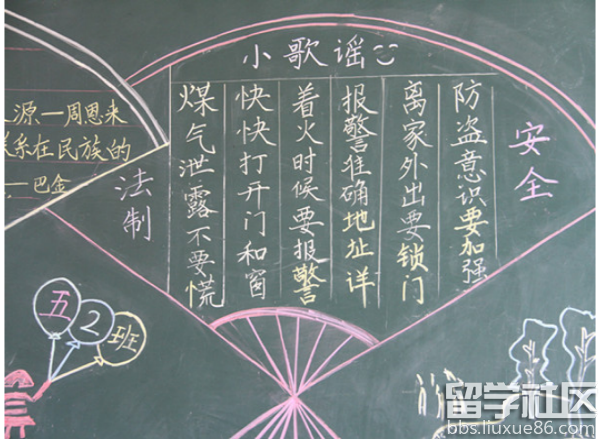 小歌谣
煤气泄露不要慌
快快打开门和窗
着火时候要报警
报警准确地址详
离家外出要锁门
防盗意识要加强
安全
法制
源—周恩来
系在民族的
—巴金
五2班
留学社区
bbs.liuxue86.com